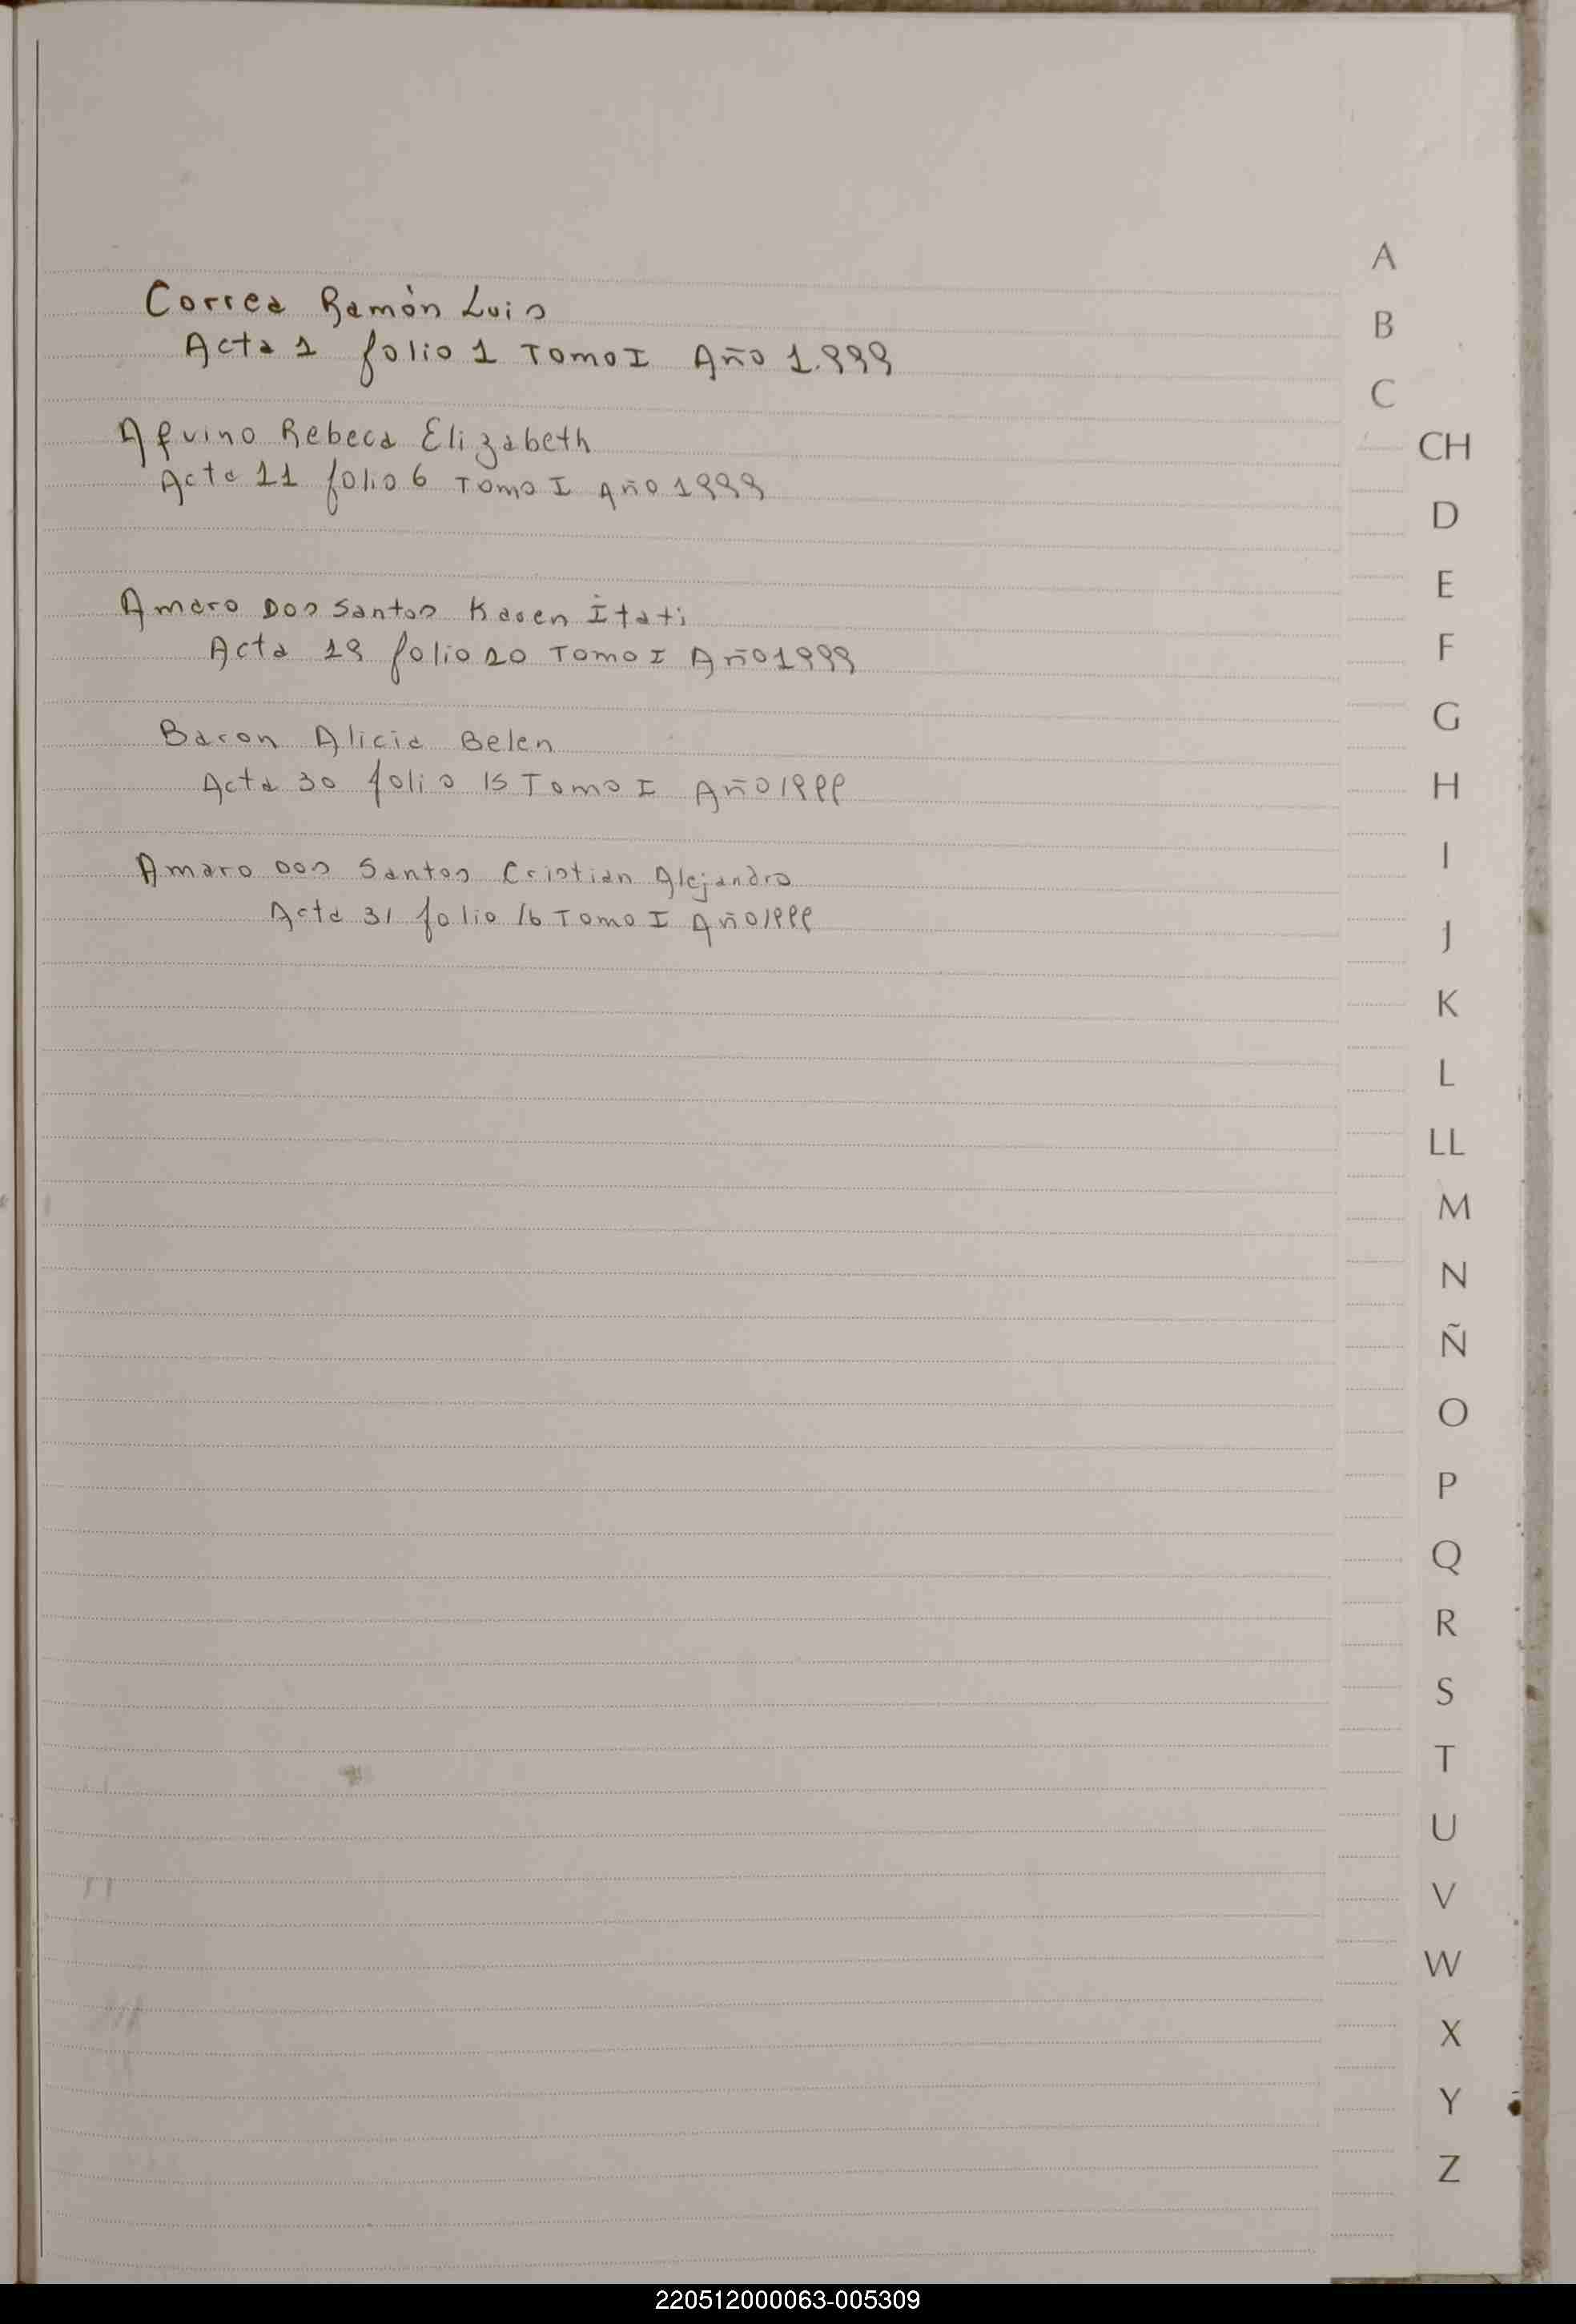 Correa Ramón Luis
Acta 1 folio 1 Tomo I Año 1.999
Aquino Rebeca Elizabeth
Acta 11 folio 6 Tomo I Año 1999
Amaro Dos Santos Karen Itati
Acta 19 folio 10 Tomo I Año 1999
Baron Alicia Belen
Acta 30 folio 15 Tomo I Año 1999
Amaro Dos Santos Cristian Alejandro
Acta 31 folio 16 Tomo I Año 1999
A
B
C
CH
D
E
F
G
H
I
J
K
L
LL
M
N
Ñ
O
P
Q
R
S
T
U
V
W
X
Y
Z
220512000063-005309